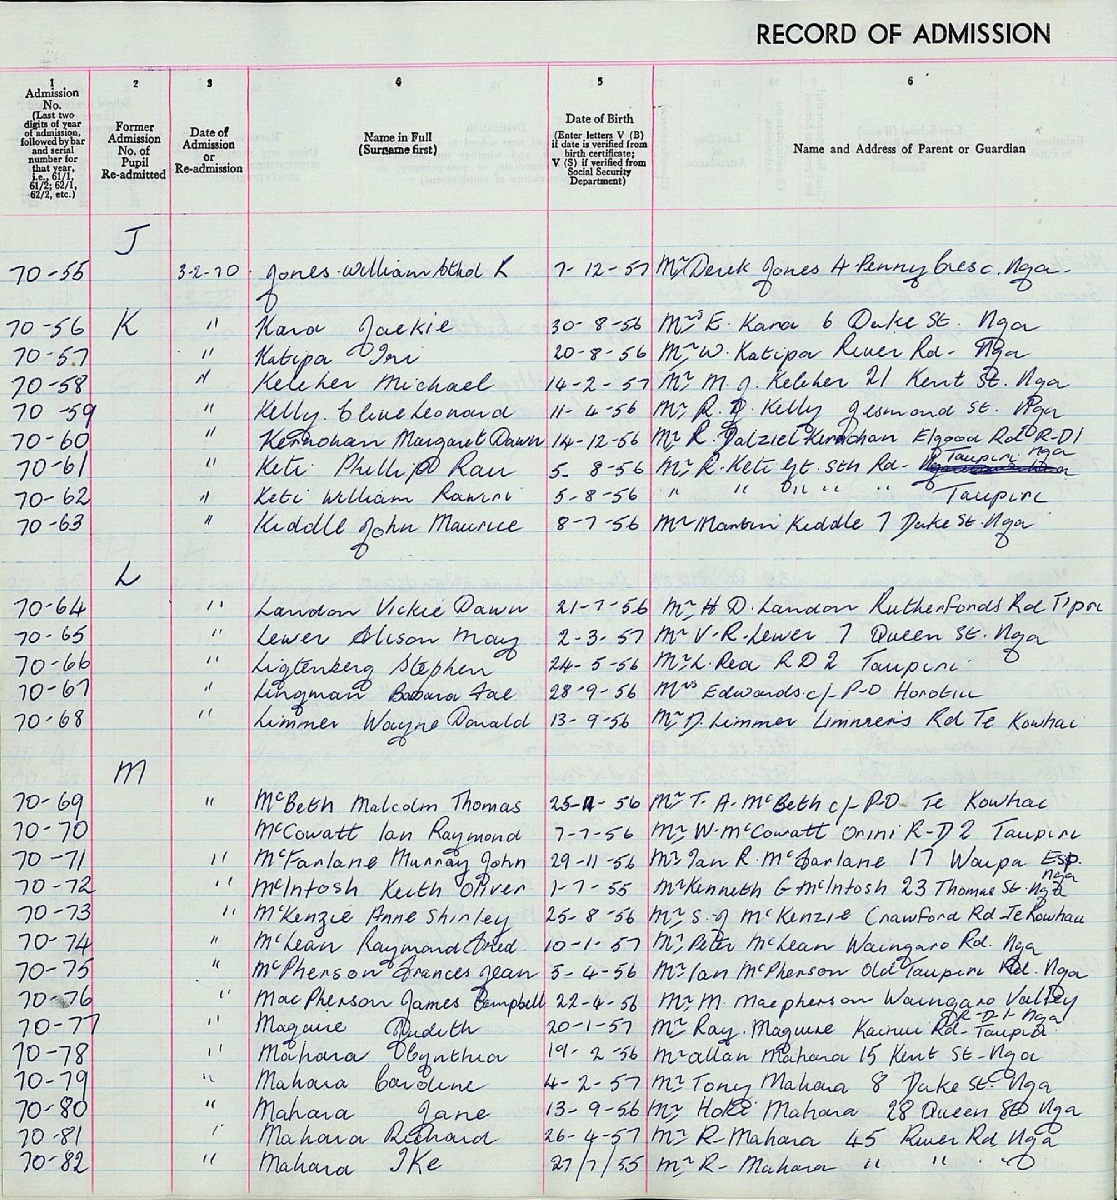 RECORD OF ADMISSION
1 2 3 4 5 6
Admission No. (Last two digits of year of admission, followed by bar and serial number for that year, i.e., 61/1, 61/2; 62/1, 62/2, etc.)
Former Admission No. of Pupil Re-admitted
Date of Admission or Re-admission
Name in Full (Surname first)
Date of Birth (Enter letters V (B) if date is verified from birth certificate; V (S) if verified from Social Security Department)
Name and Address of Parent or Guardian
J
70-55 3-2-70 Jones William K 7-12-57 Mr Derek Jones 4 Penny Cresc. Nga-
70-56 K " Kara Jackie 30-8-56 Mrs E. Kara 6 Duke St. Nga
70-57 " Katipa Iri 20-8-56 Mr W. Katipa River Rd- Nga
70-58 " Keleher Michael 14-2-57 Mr M. J. Keleher 21 Kent St. Nga
70-59 " Kelly. Clive Leonard 11-4-56 Mr R. D. Kelly Jesmond St. Nga
70-60 " Kernohan Margaret Dawn 14-12-56 Mr R. Dalziel Kernohan Elgood Rd R-D1
Nga
70-61 " Keti Phillip Rau 5-8-56 Mr R. Keti Gt. Sth Rd- Taupiri
70-62 " Keti William Rawiri 5-8-56 " " " " " Taupiri
70-63 " Kiddle John Maurice 8-7-56 Mr Martin Kiddle 7 Duke St. Nga
L
70-64 " Landon Vickie Dawn 21-7-56 Mr H D. Landon Rutherfords Rd Tipri
70-65 " Lewer Alison May 2-3-57 Mr V-R-Lewer 7 Queen St. Nga
70-66 " Ligtenberg Stephen 24-5-56 Mr L. Rea R D 2 Taupiri
70-67 " Lingman Babara Fae 28-9-56 Mrs Edwards c/- P-O Horotiu
70-68 " Limmer Wayne Donald 13-9-56 Mr D. Limmer Limmers Rd Te Kowhai
M
70-69 " McBeth Malcolm Thomas 25- -56 Mr T. A. McBeth c/- P-O. Te Kowhai
70-70 McCowatt Ian Raymond 7-7-56 Mr W. McCowatt Orini R-D 2 Taupiri
70-71 " McFarlane Murray John 29-11-56 Mr Ian R. McFarlane 17 Waipa Esp.
Nga
70-72 " McIntosh Keith Oliver 1-7-55 Mr Kenneth G McIntosh 23 Thomas St Nga
70-73 " McKenzie Anne Shirley 25-8-56 Mr S. J McKenzie Crawford Rd-Te Kowhai
70-74 " McLean Raymond Fred. 10-1-57 Mr Peter McLean Waingaro Rd. Nga
70-75 " McPherson Frances Jean 5-4-56 Mr Ian McPherson Old Taupiri Rd. Nga
70-76 " MacPherson James Campbell 22-4-56 Mr M. Macpherson Waingaro Valley
R-D1- Nga
70-77 " Maguire Judith 20-1-57 Mr Ray. Maguire Kainui Rd-Taupiri
70-78 " Mahara Cynthia 19-2-56 Mr Allan Mahara 15 Kent St-Nga
70-79 " Mahara Caroline 4-2-57 Mr Tony Mahara 8 Duke St- Nga
70-80 " Mahara Jane 13-9-56 Mr Hoki Mahara 28 Queen St Nga
70-81 " Mahara Richard 26-4-57 Mr R- Mahara 45 River Rd Nga
70-82 " Mahara Ike 27/7/55 Mr R- Mahara " " "